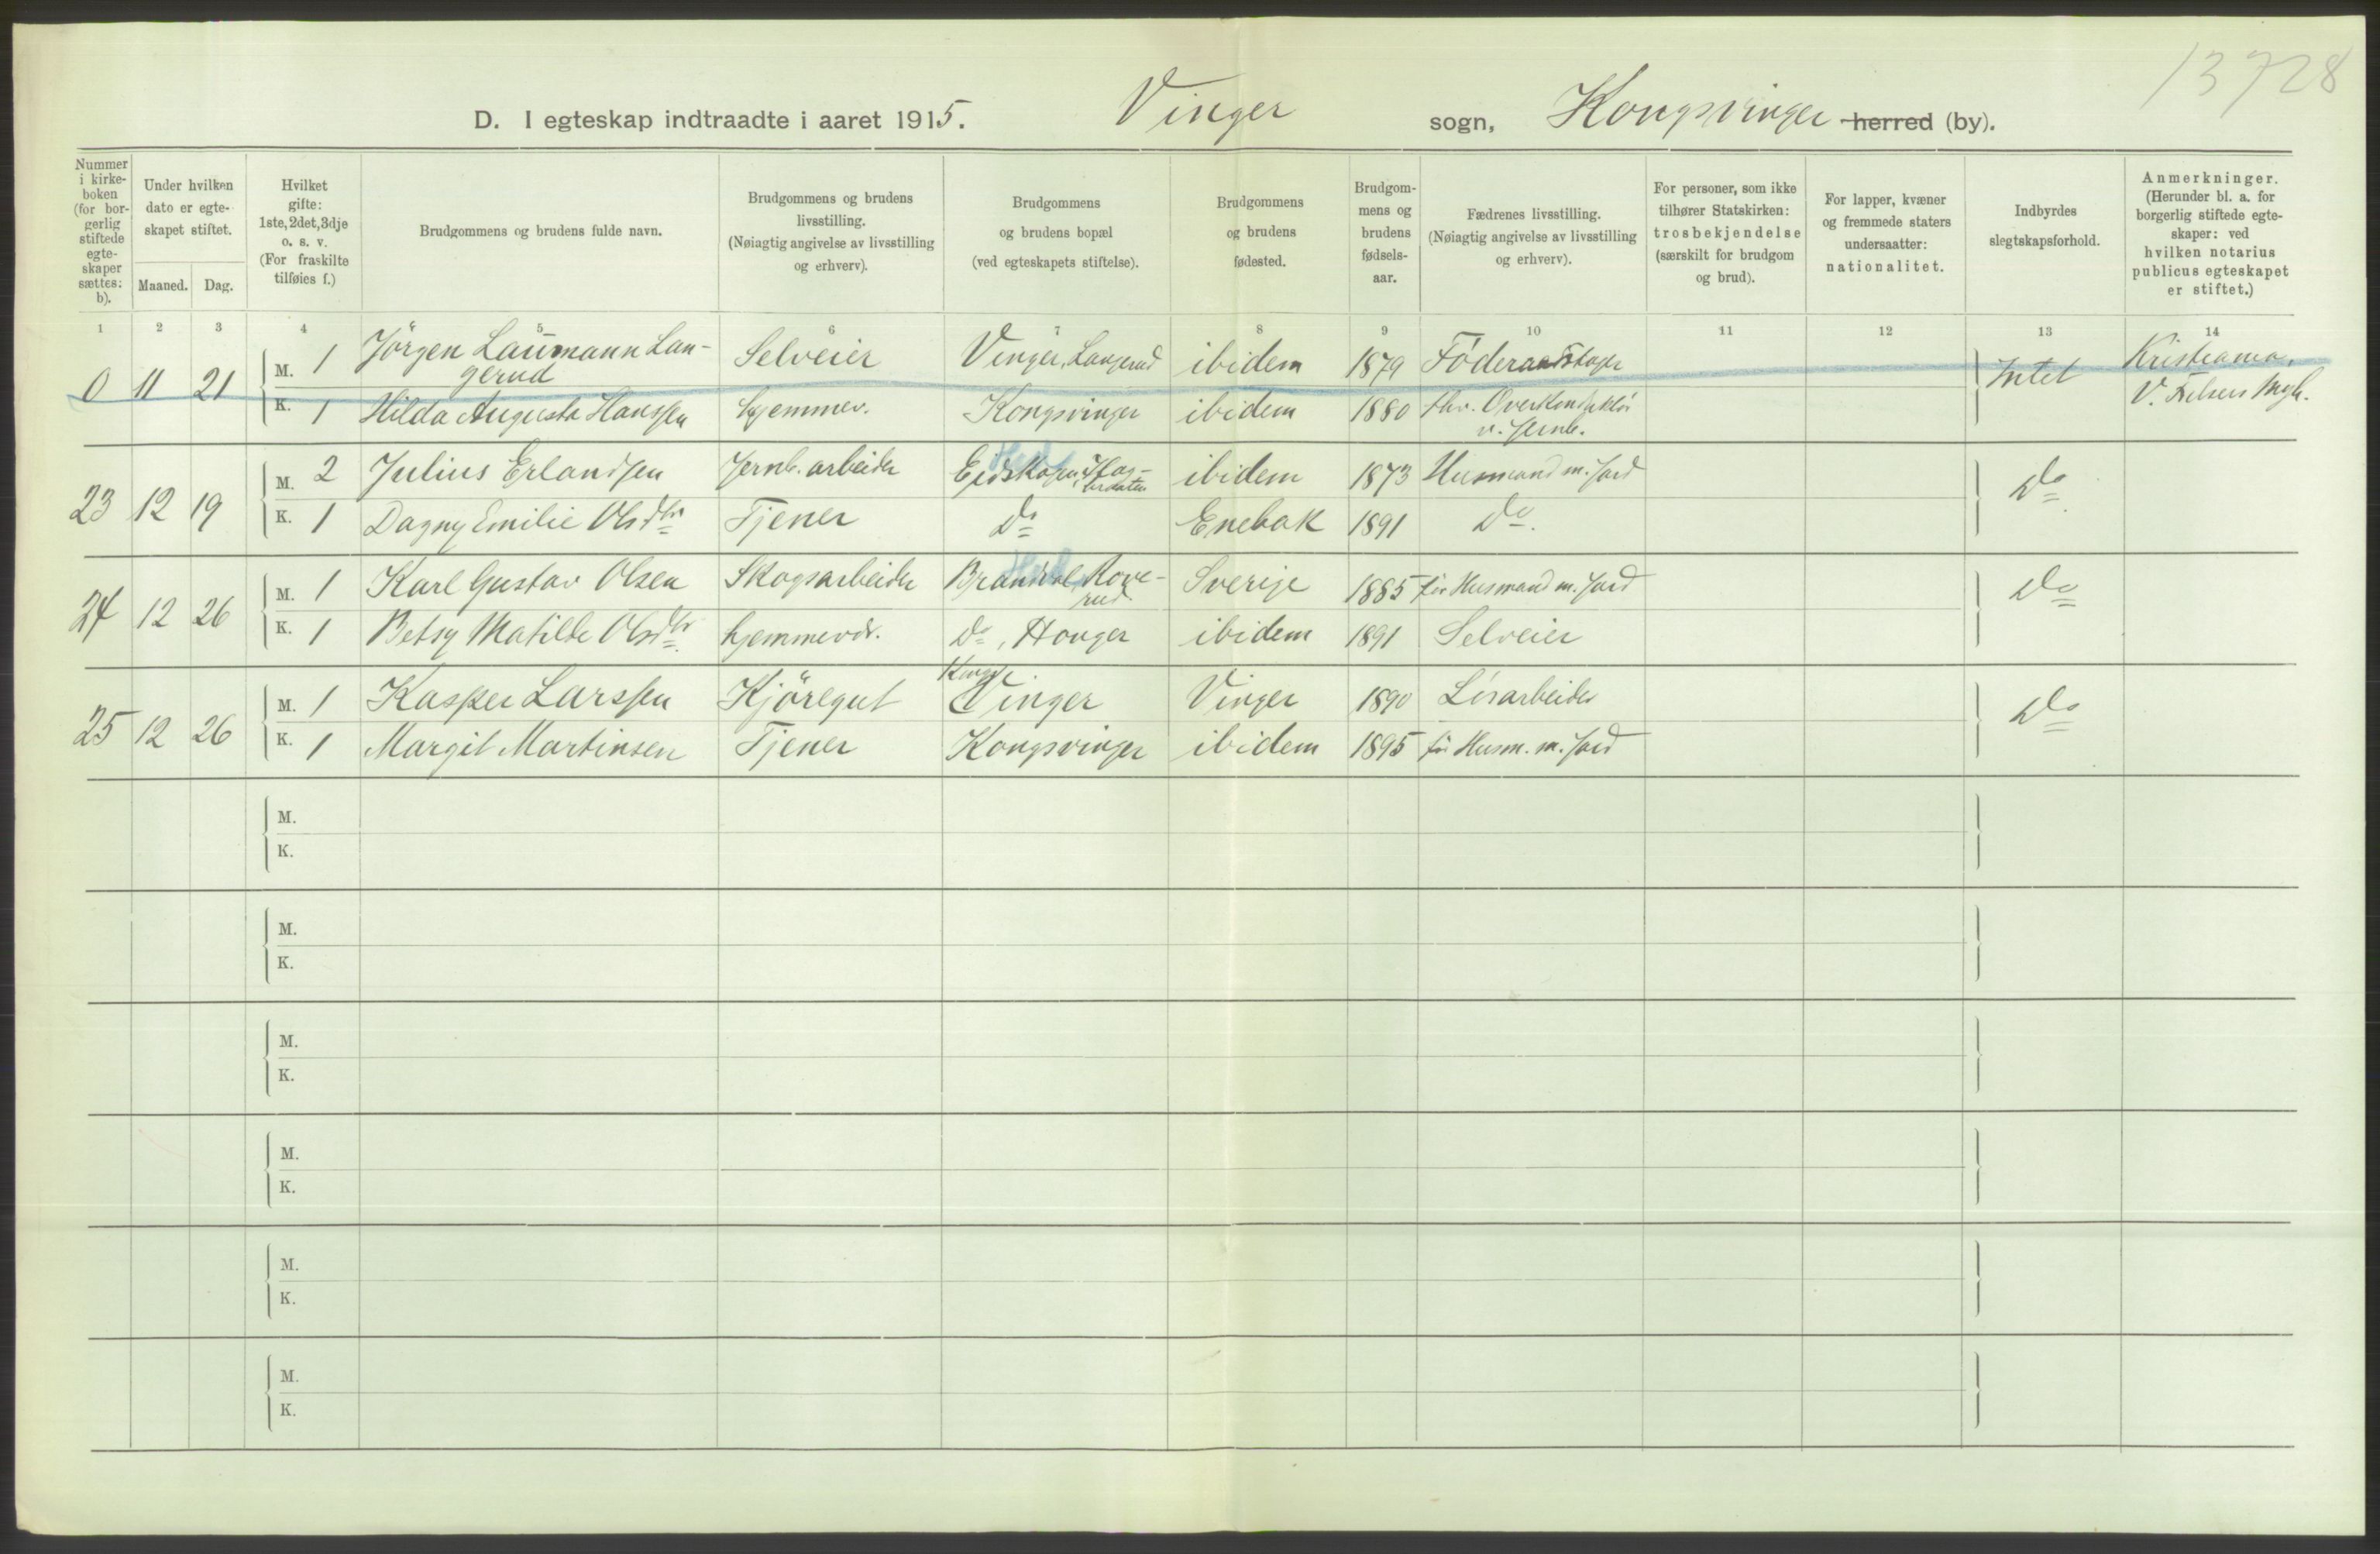 13728
D. I egteskap indtraadte i aaret 1915. Vinger sogn, Kongsvinger herred (by).
Nummer i kirkeboken (for borgerlig stiftede egteskaper sættes: b).
Under hvilken dato er egteskapet stiftet.
Maaned. Dag.
Hvilket gifte: 1ste, 2det, 3dje o. s. v. (For fraskilte tilføies f.)
Brudgommens og brudens fulde navn.
Brudgommens og brudens livsstilling. (Nøiagtig angivelse av livsstilling og erhverv).
Brudgommens og brudens bopæl (ved egteskapets stiftelse).
Brudgommens og brudens fødested.
Brudgommens og brudens fødselsaar.
Fædrenes livsstilling. (Nøiagtig angivelse av livsstilling og erhverv).
For personer, som ikke tilhører Statskirken: trosbekjendelse (særskilt for brudgom og brud).
For lapper, kvæner og fremmede staters undersaatter: nationalitet.
Indbyrdes slegtskapsforhold.
Anmerkninger. (Herunder bl. a. for borgerlig stiftede egteskaper: ved hvilken notarius publicus egteskapet er stiftet.)
1 2 3 4 5 6 7 8 9 10 11 12 13 14
0 11 21 M. 1 Jörgen Laumann Langerud Selveier Vinger, Langerud ibidem 1879 Föderaadstager Intet Kristiania,
K. 1 Hilda Augusta Hanssen hjemmev. Kongsvinger ibidem 1880 fhv. Overkonduktör v. Jernb.
23 12 19 M. 2 Julius Erlandsen Jernb. arbeider Eidskogen ibidem 1873 Husmand m. Jord Do
K. 1 Dagny Emilie Olsdtr Tjener Do Enebak 1891 Do.
24 12 26 M. 1 Karl Gustav Olsen Skogsarbeider Brandval, Roverud Sverige 1885 för Husmand m. Jord Do
K. 1 Betsy Matilde Olsdtr hjemmevr. Do, Honger ibidem 1891 Selveier
25 12 26 M. 1 Kasper Larssen Kjöregut Kongsvinger Vinger 1890 Lösarbeider Do
K. 1 Margit Martinsen Tjener Kongsvinger ibidem 1895 för Husm. m. Jord
M.
K.
M.
K.
M.
K.
M.
K.
M.
K.
M.
K.